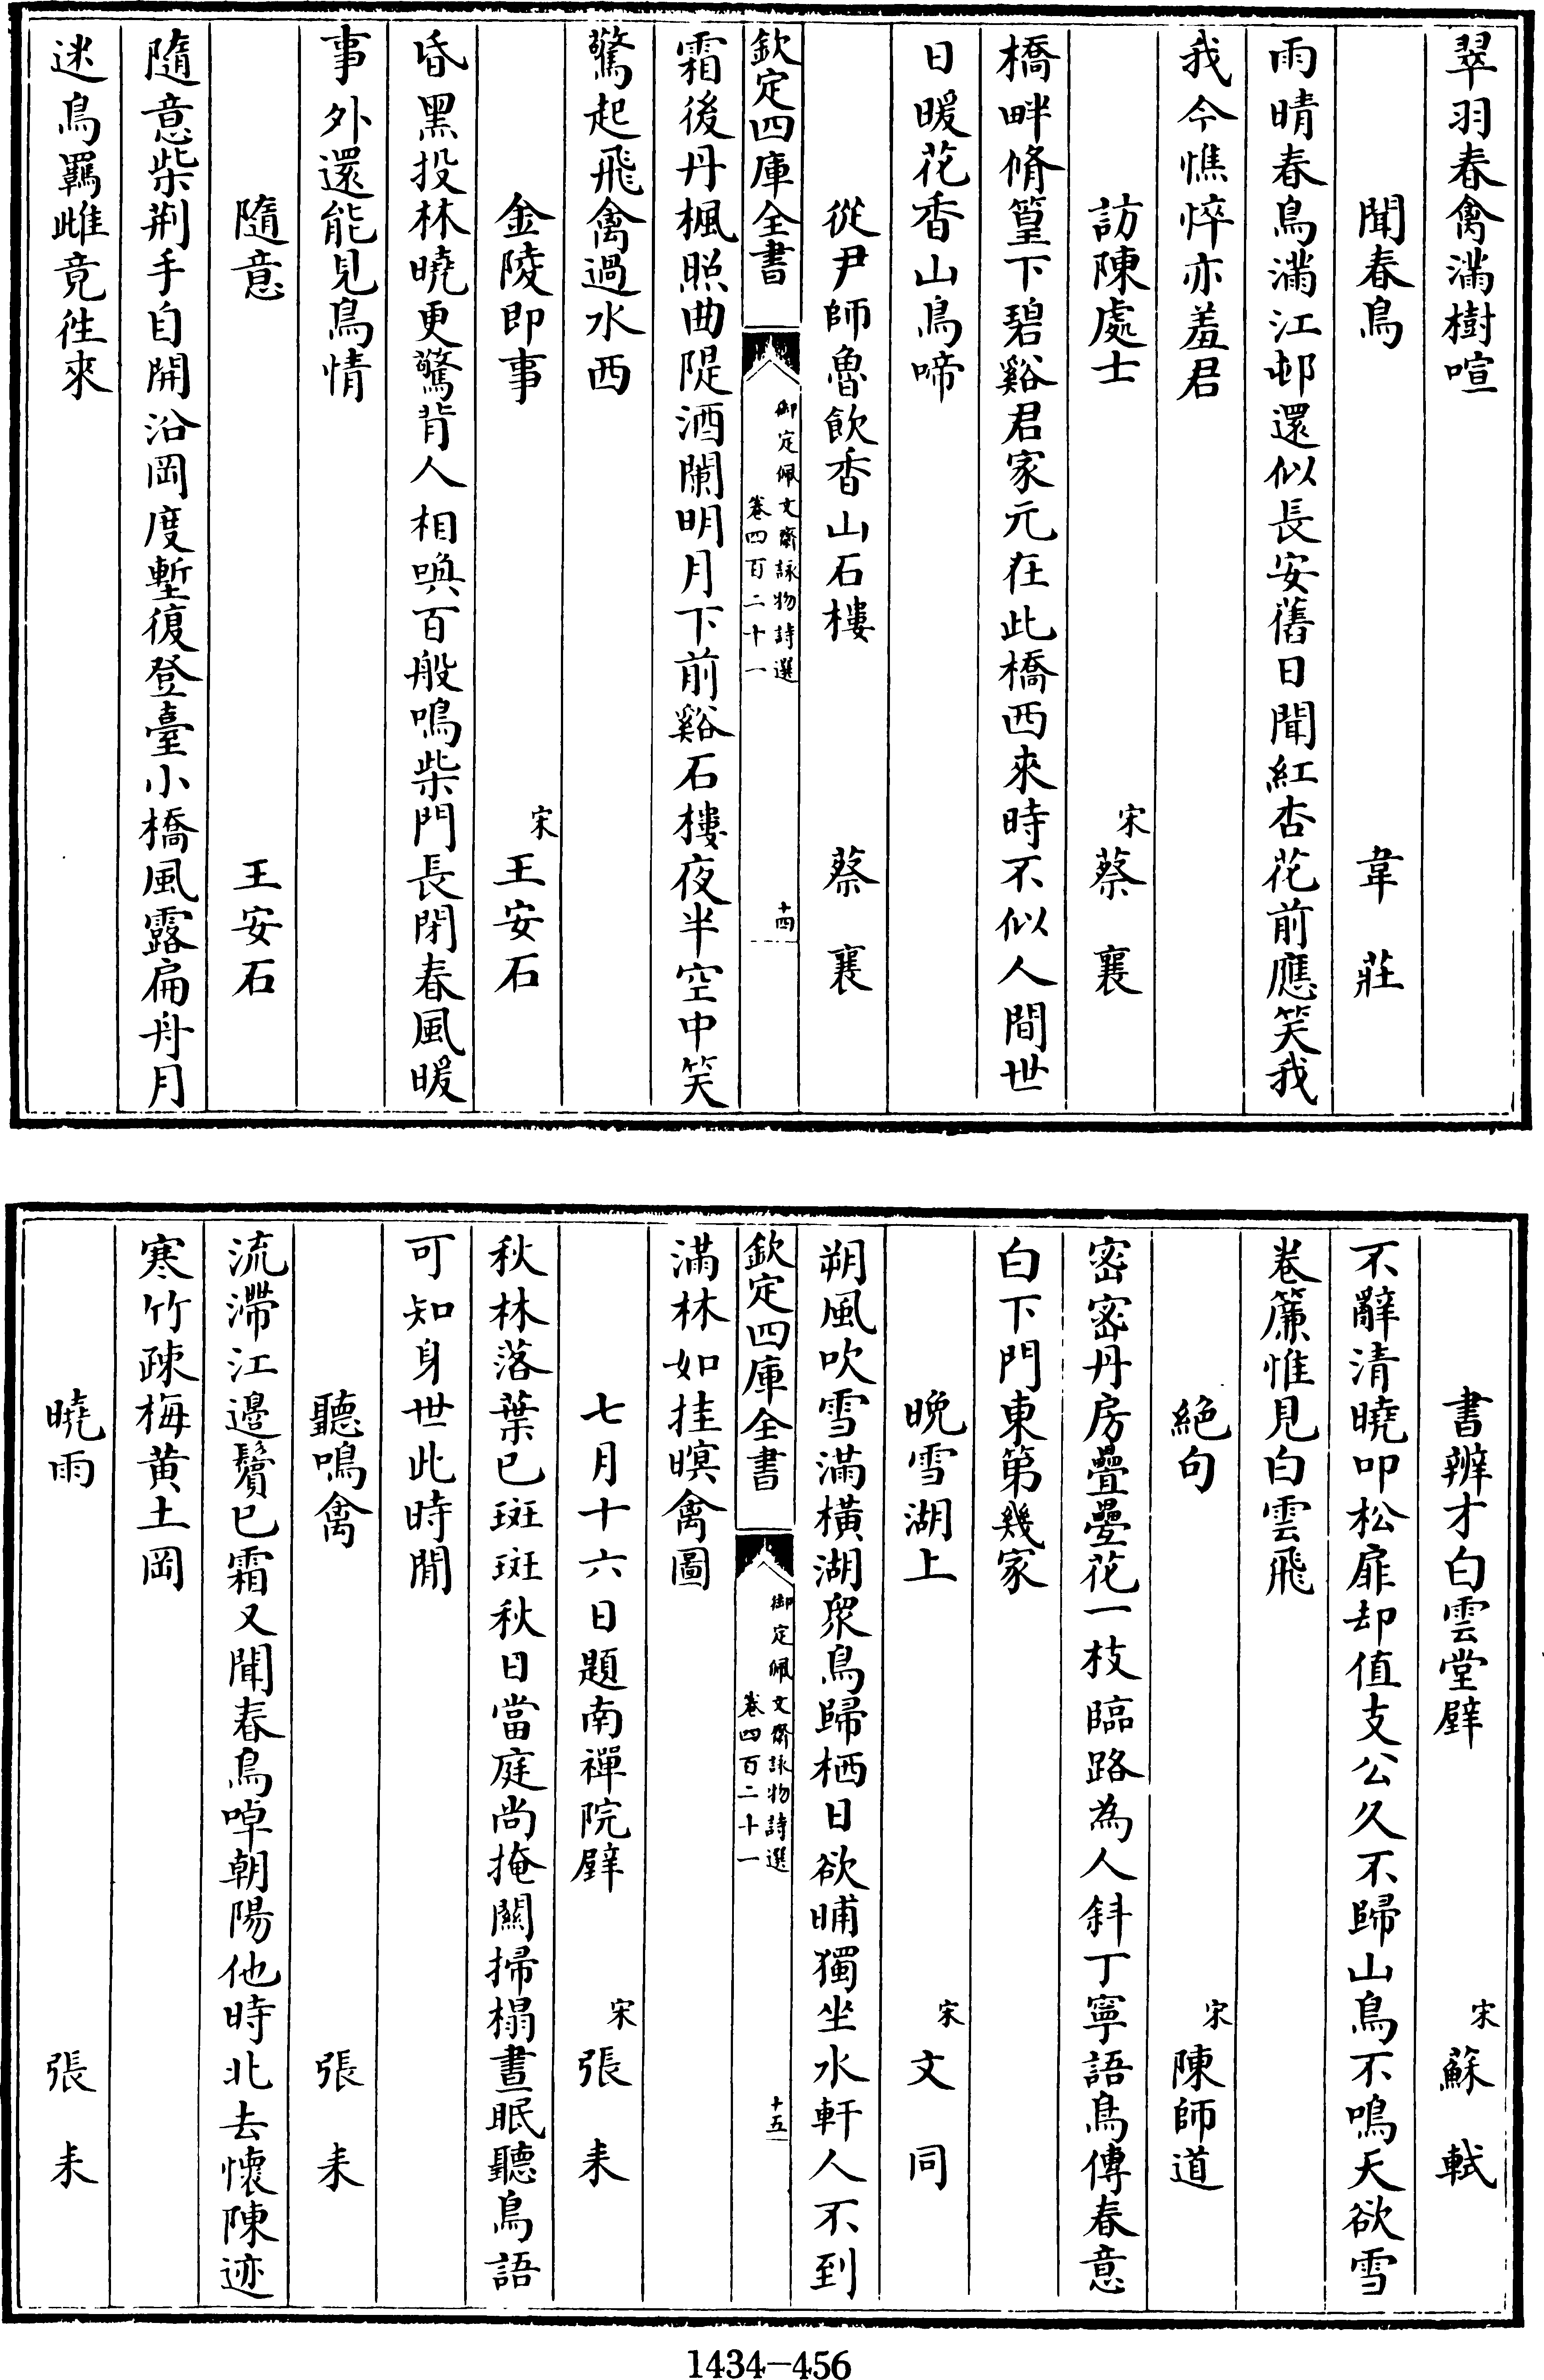 翠羽春禽滿樹喧
聞春鳥　韋莊
雨晴春鳥滿江邨還似長安舊日聞紅杏花前應笑我
我今憔悴亦羞君
訪陳處士　宋蔡襄
橋畔脩篁下碧谿君家元在此橋西來時不似人間世
日暖花香山鳥啼
從尹師魯飲香山石樓　蔡襄
欽定四庫全書　御定佩文齋詠物詩選　卷四百二十一　十四
霜後丹楓照曲隄酒闌明月下前谿石樓夜半空中笑
驚起飛禽過水西
金陵即事　宋王安石
昏黑投林曉更驚背人相喚百般鳴柴門長閉春風暖
事外還能見鳥情
隨意　王安石
隨意柴荆手自開沿岡度塹復登臺小橋風露扁舟月
迷鳥羈雌竟徃來
書辨才白雲堂壁　宋蘇軾
不辭清曉叩松扉却值支公久不歸山鳥不鳴天欲雪
卷簾惟見白雲飛
絕句　宋陳師道
密密丹房疊疊花一枝臨路為人斜丁寧語鳥傳春意
白下門東第幾家
晚雪湖上　宋文同
朔風吹雪滿橫湖衆鳥歸栖日欲晡獨坐水軒人不到
欽定四庫全書　御定佩文齋詠物詩選　卷四百二十一　十五
滿林如挂暝禽圖
七月十六日題南禪院壁　宋張耒
秋林落葉已斑斑秋日當庭尚掩關掃榻晝眠聽鳥語
可知身世此時閒
聽鳴禽　張耒
流滯江邊鬢已霜又聞春鳥啅朝陽他時北去懷陳迹
寒竹疎梅黄土岡
曉雨　張耒
1434-456